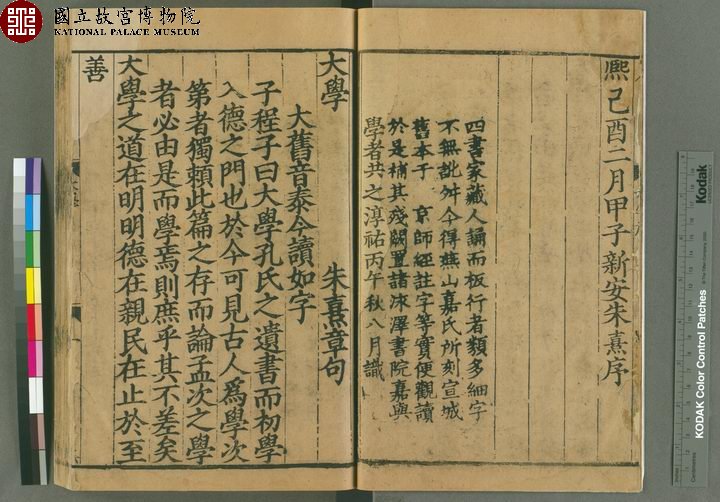 國立故宮博物院
NATIONAL PALACE MUSEUM
熙己酉二月甲子新安朱熹序
四書家藏人誦而板行者類多細字
不無訛舛今得燕山嘉氏所刻宣城
舊本于 京師經註字等實便觀讀
於是補其殘闕置諸泳澤書院嘉與
學者共之淳祐丙午秋八月識
大學 朱熹章句
大舊音泰今讀如字
子程子曰大學孔氏之遺書而初學
入德之門也於今可見古人爲學次
第者獨頼此篇之存而論孟次之學
者必由是而學焉則庶乎其不差矣
大學之道在明明德在親民在止於至
善
Kodak
KODAK Color Control Patches